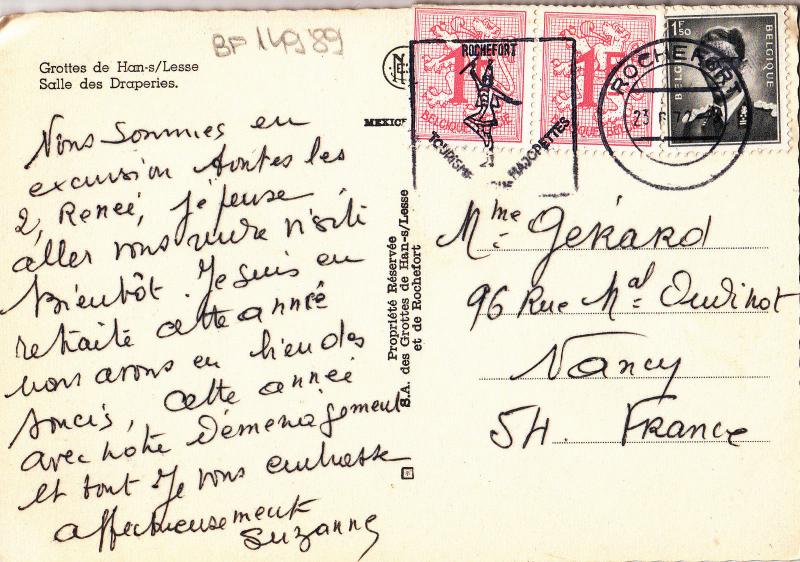 BF 149'89
Grottes de Han-s/Lesse
Salle des Draperies.
Nous sommes en
excursion toutes les
2, Reneé, je pense
aller vous rendre visite
bientôt. Je suis en
retraite cette année
nous avons eu bien des
soucis, cette année
avec notre Déménagement
et tout Je vous embrasse
affectueusement
Suzanne
MEXICH
Propriété Réservée
S.A. des Grottes de Han-s/Lesse
et de Rochefort
1F
BELGIQUE
1F
BELGIQUE
1F50
BELGIQUE
ROCHEFORT
TOURISME
MAJORETTES
ROCHEFORT
Mme Gérard
96 Rue Mal Oudinot
Nancy
54. France